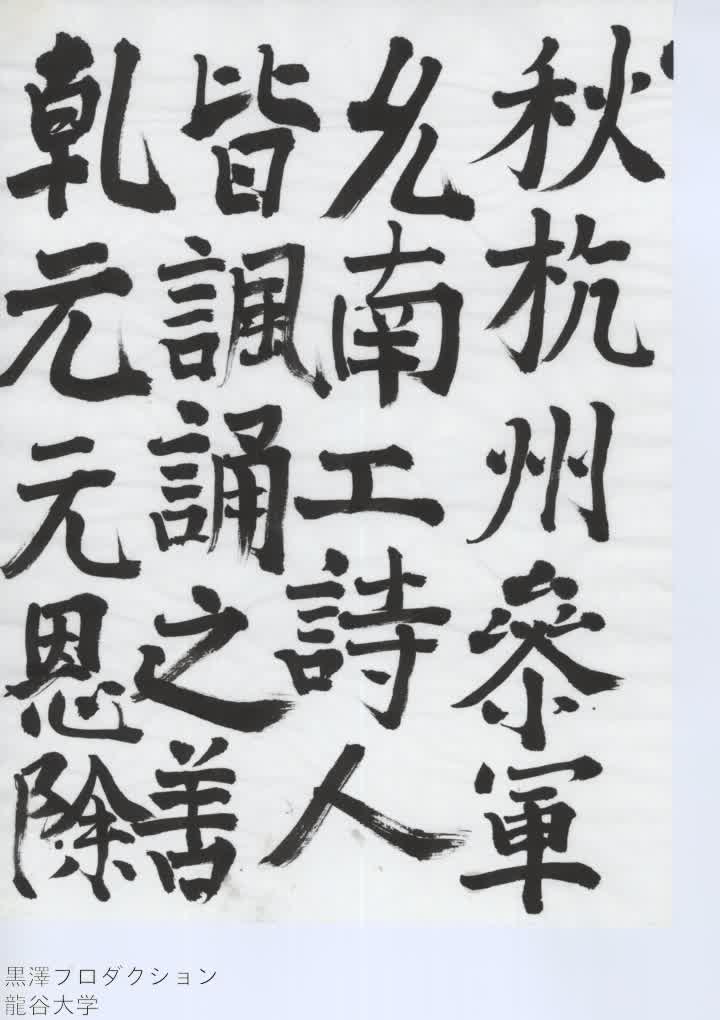 秋杭州參軍
允南工詩人
皆諷誦之善
乾元元恩除
黒澤プロダクション
龍谷大学